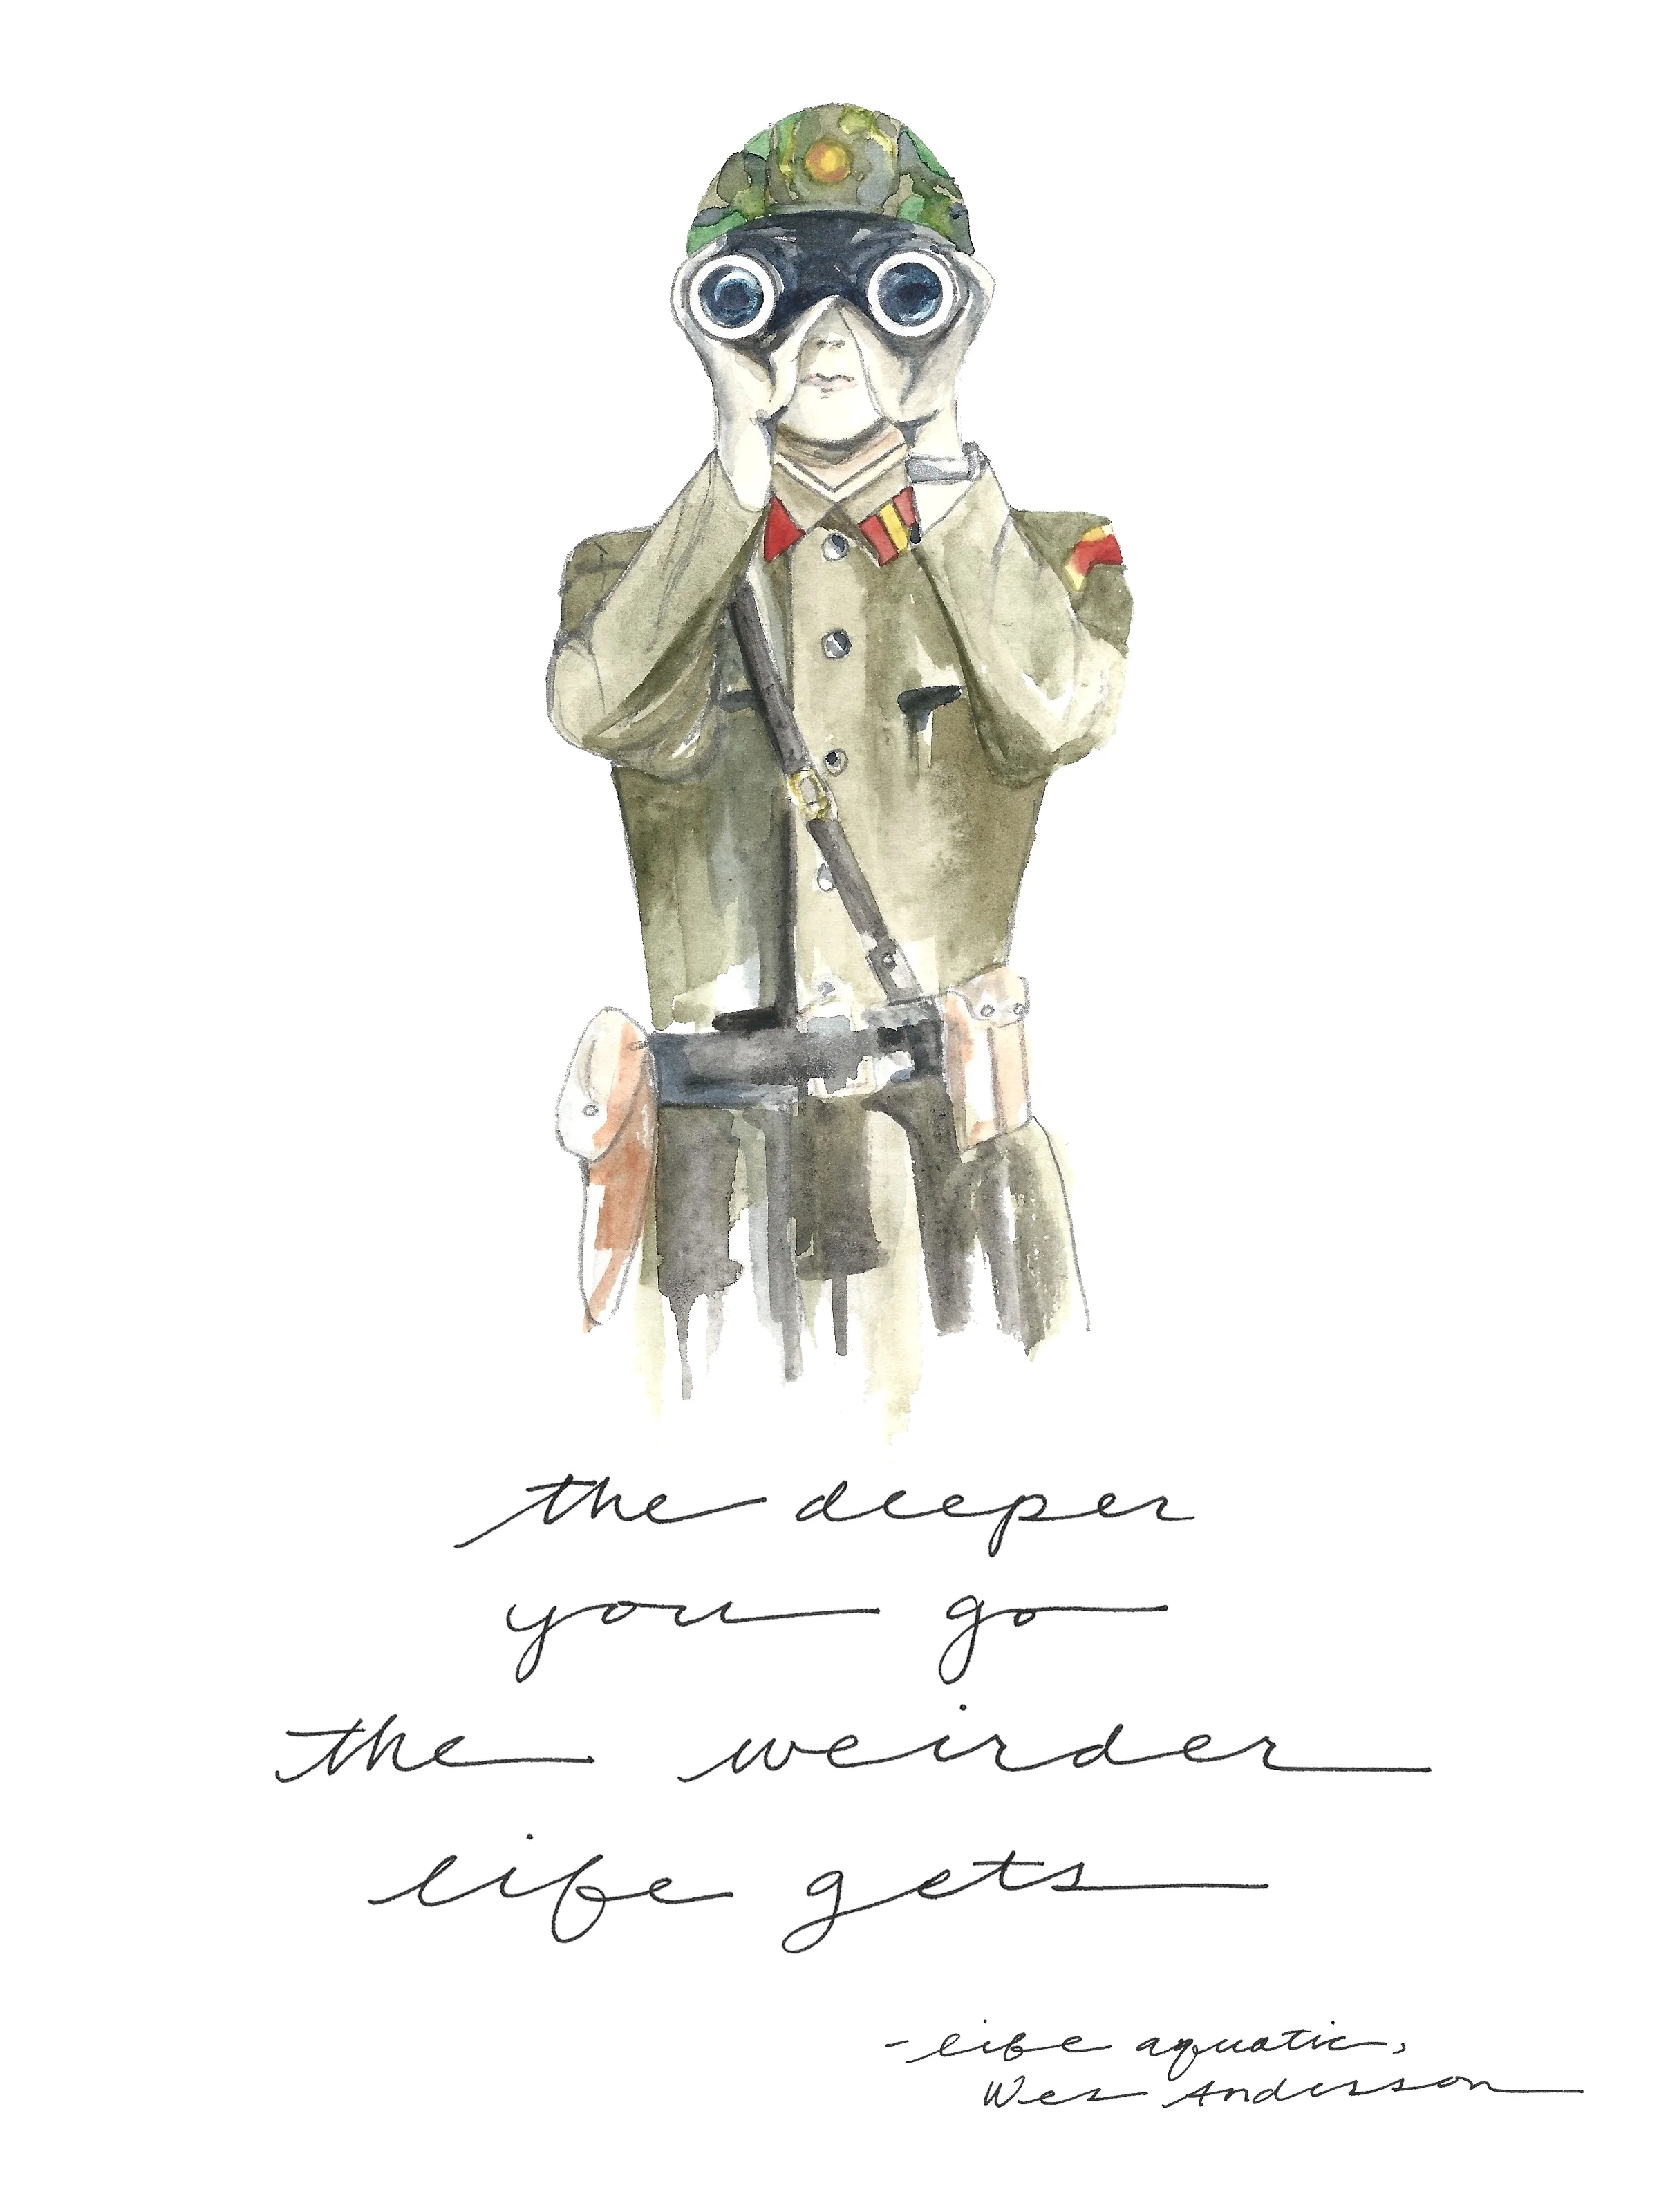 the deeper
you go
the weirder
life gets
- life aquatic,
Wes Anderson